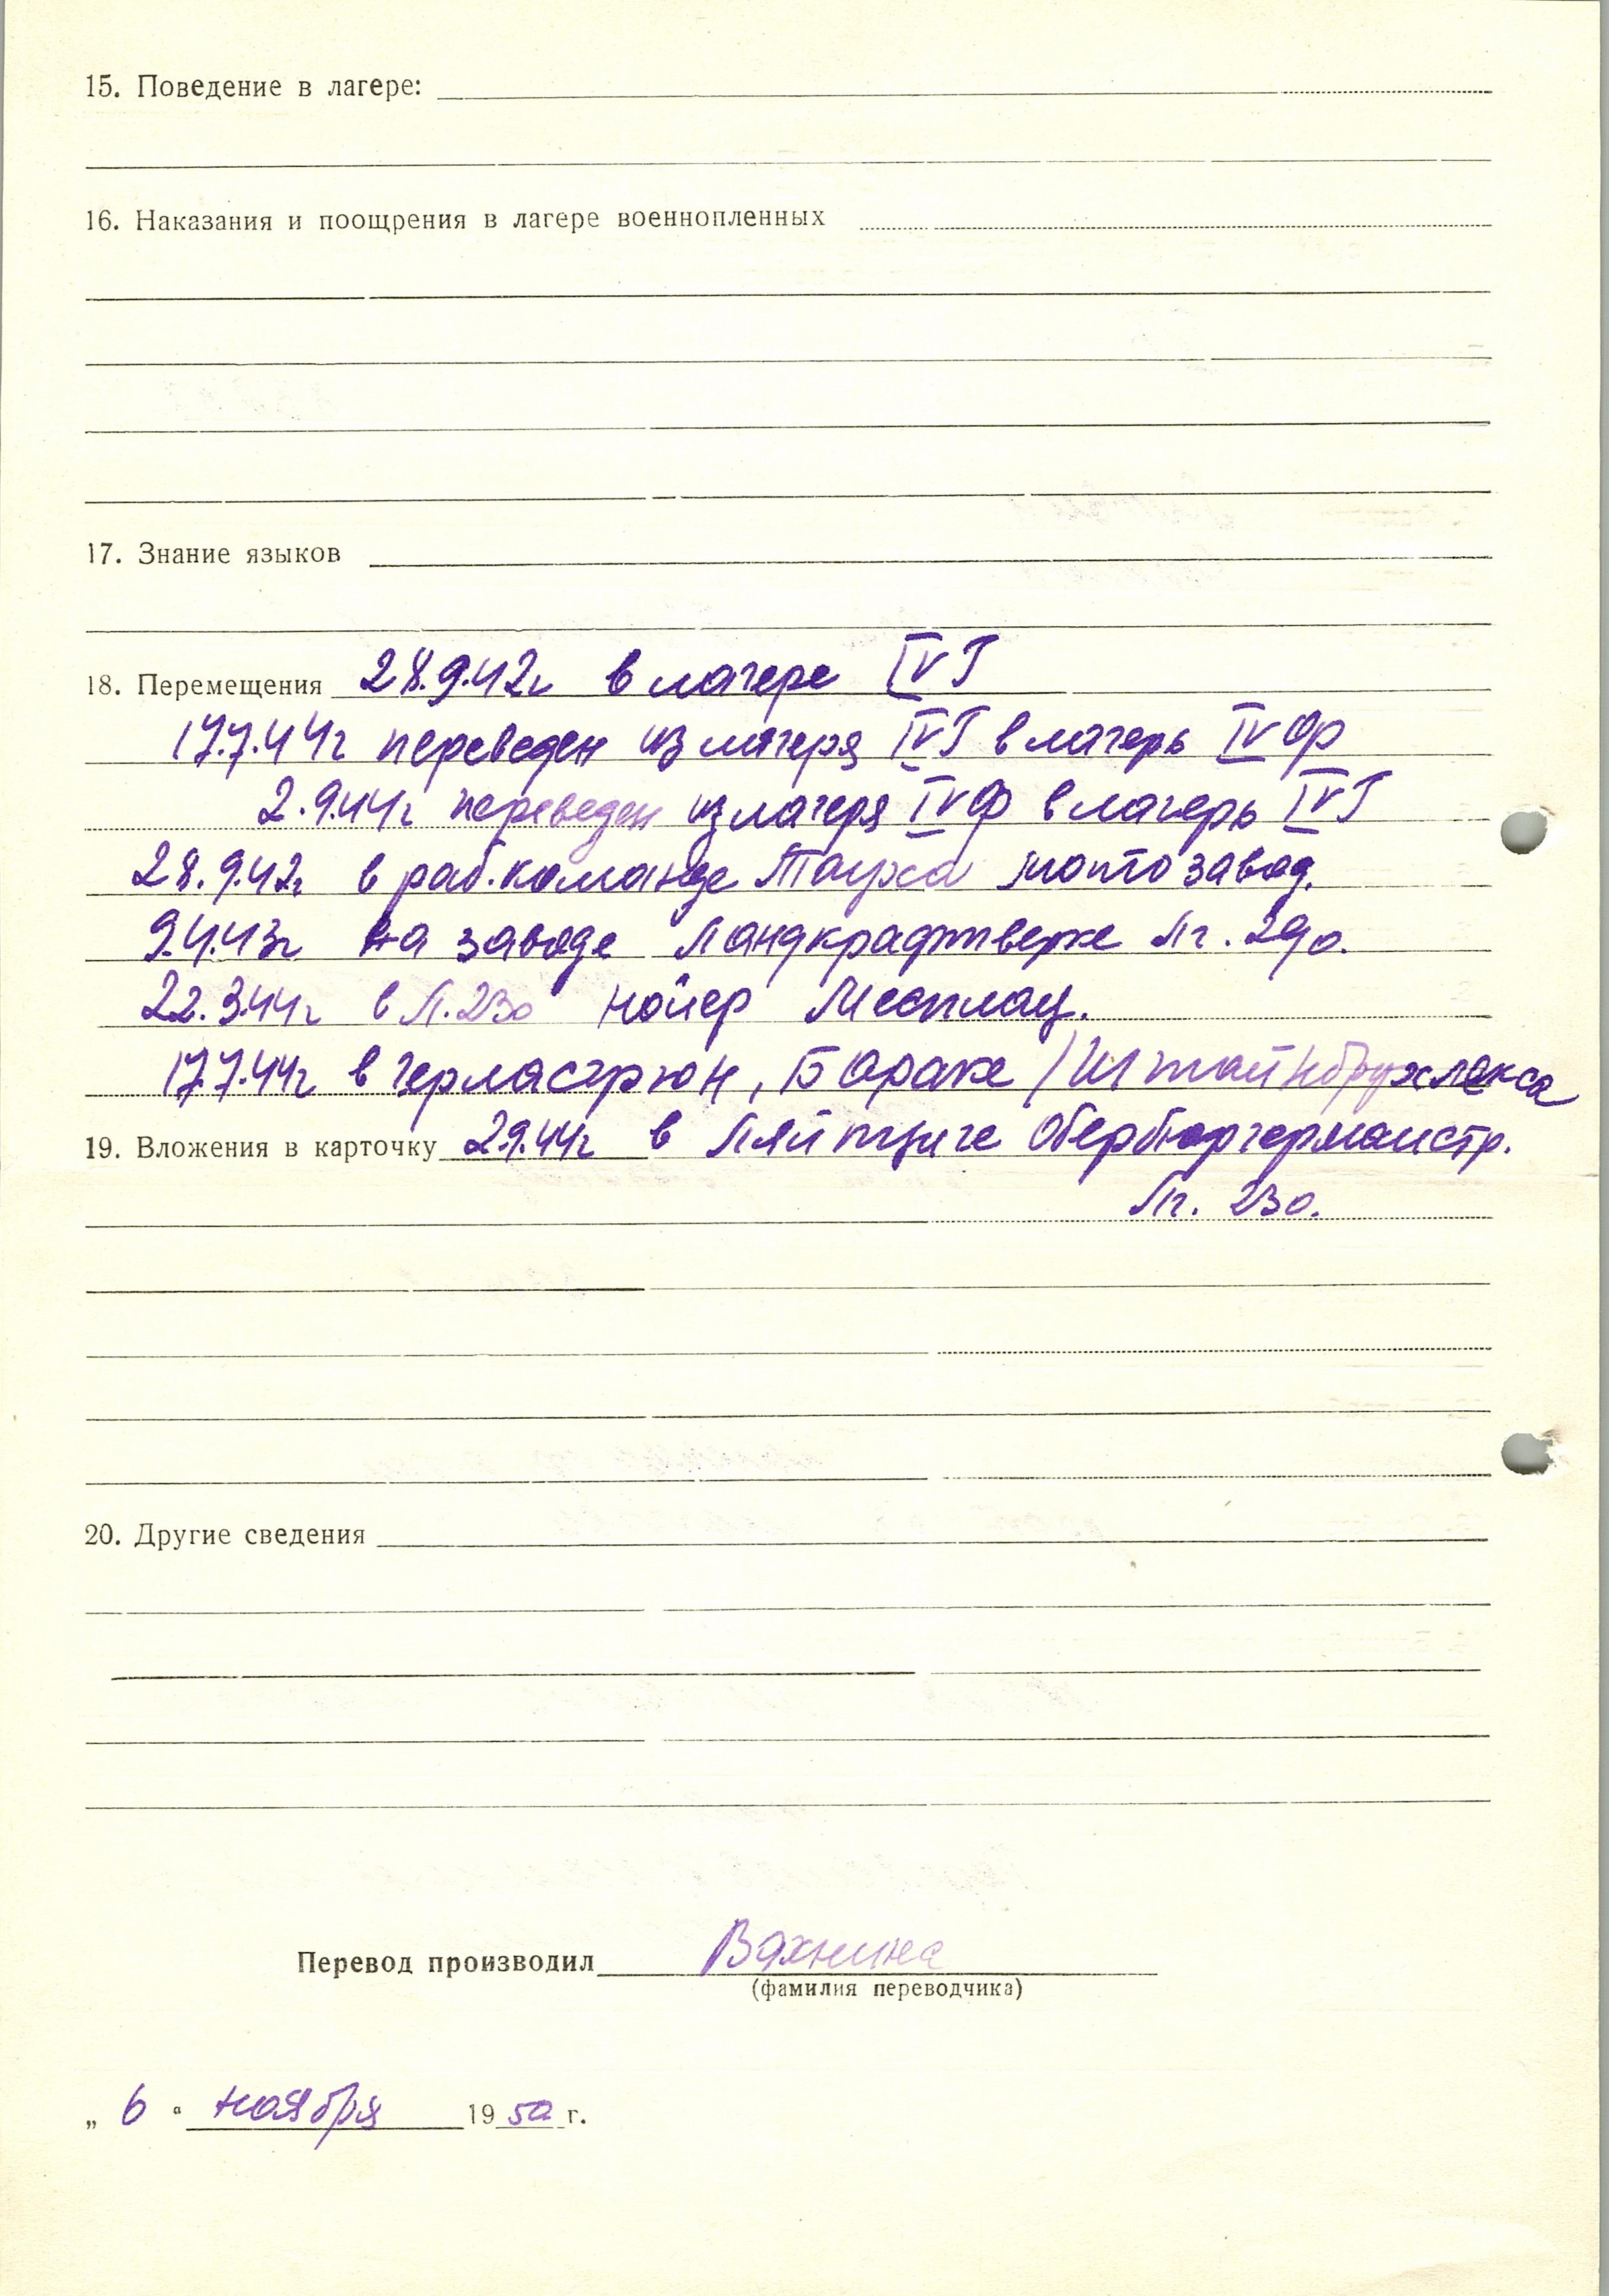 15. Поведение в лагере:
16. Наказания и поощрения в лагере военнопленных
17. Знание языков
18. Перемещения 28.9.42г в лагере IV Г
17.7.44г переведен из лагеря IV Г в лагерь IV Ф
2.9.44г переведен из лагеря IV Ф в лагерь IV Г
28.9.42г в раб. команде Тауха завод.
9.4.43г на заводе Ландкрафтверке Лг. 290.
22.3.44г в Л. 230 Нойер Месплац.
17.7.44г в Герласгрюн, Бараке / Штайнбрухлакса
19. Вложения в карточку 2.9.44г в Ляйпциге Обербюргермаистр.
Лг. 230.
20. Другие сведения
Перевод производил Вахнина
(фамилия переводчика)
„ 6 " ноября 1950 г.